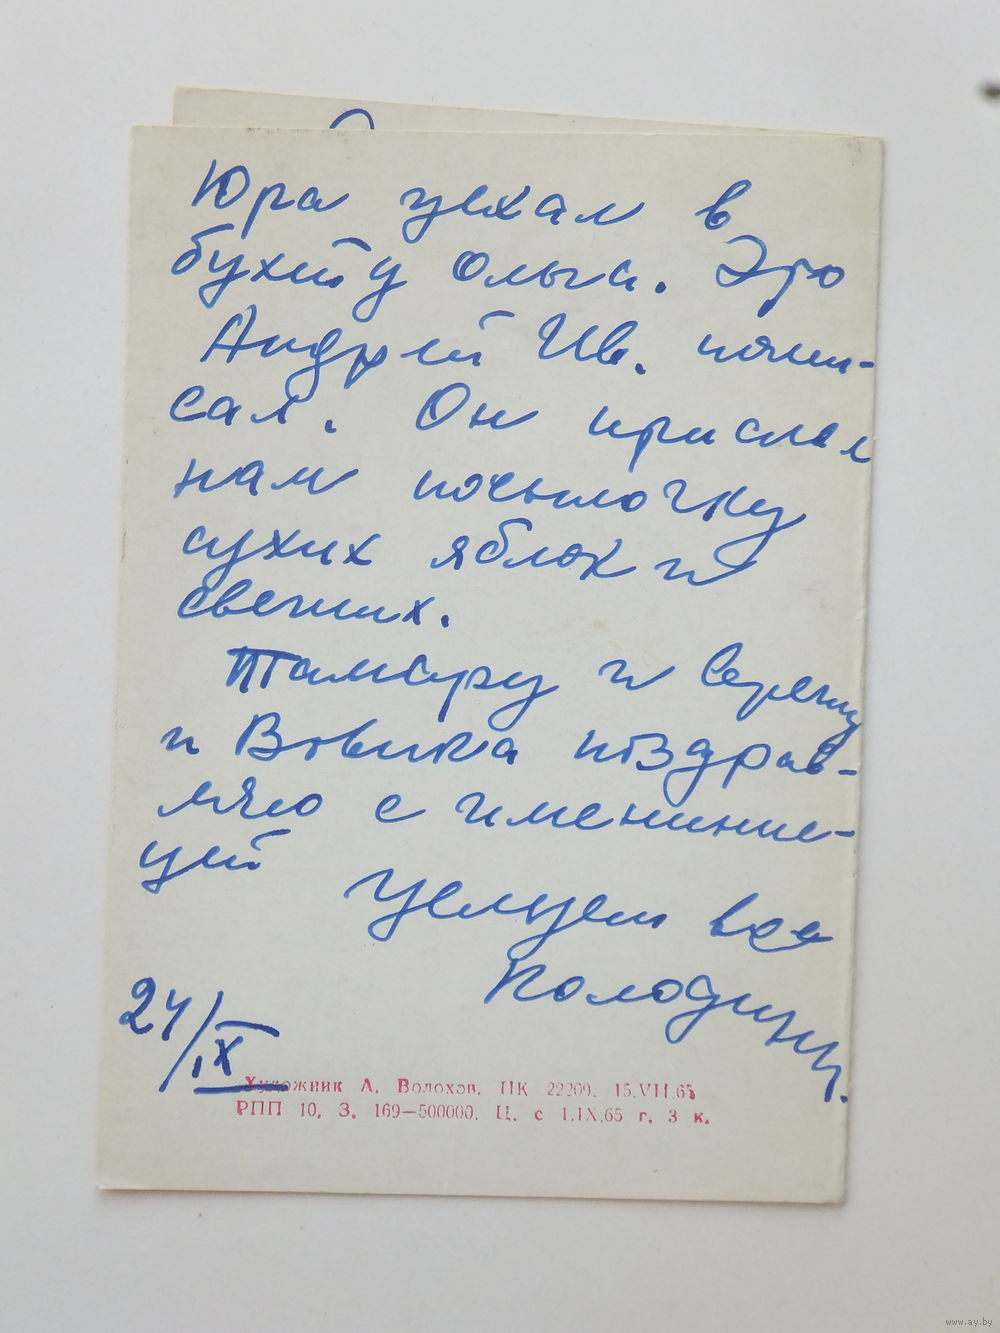 Юра уехал в
бухту Ольга. Это
Андрей Ив. напи-
сал. Он прислал
нам посылочку
сухих яблок и
свежих.
Тамару и Сережу
и Вовика поздрав-
ляю с именинни-
цей
Целуем все
Колодины.
24/IX
Художник А. Волохов. ПК 22209. 15.VII.65
РПП 10. З. 169—500000. Ц. с 1.IX.65 г. 3 к.
www.ay.by